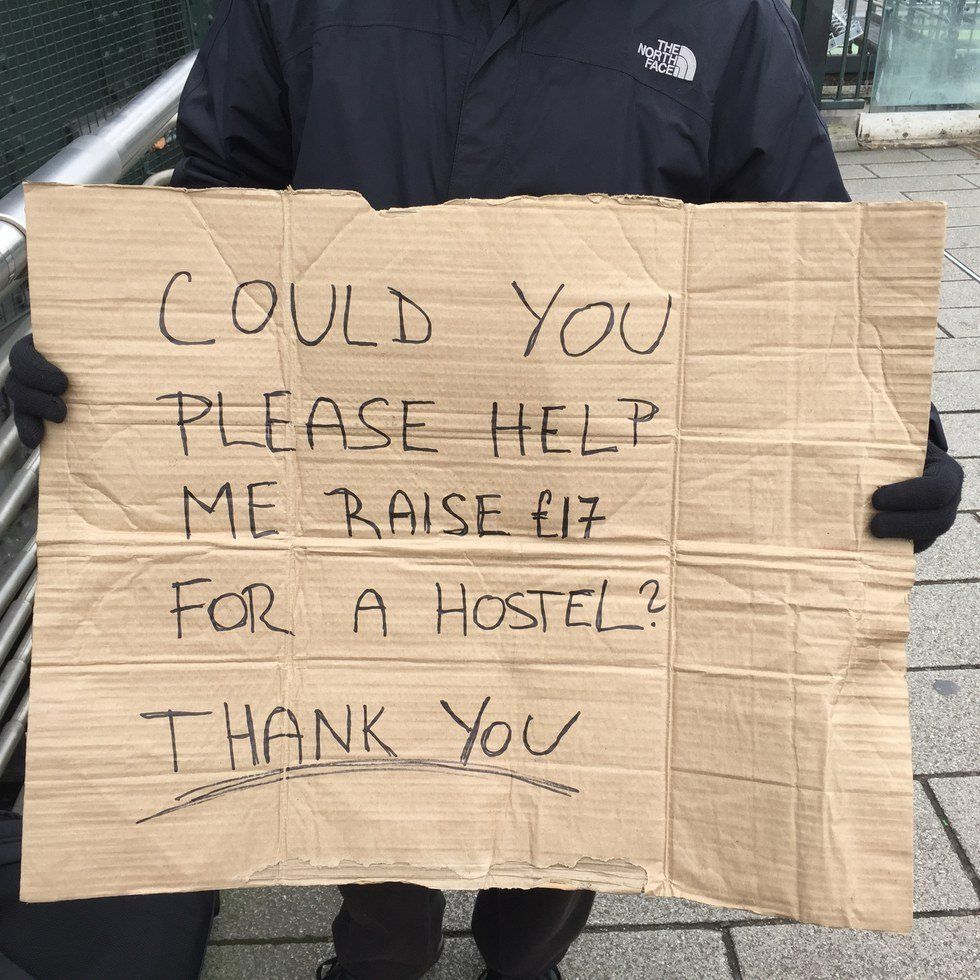 THE
NORTH
FACE
COULD YOU
PLEASE HELP
ME RAISE £17
FOR A HOSTEL?
THANK YOU